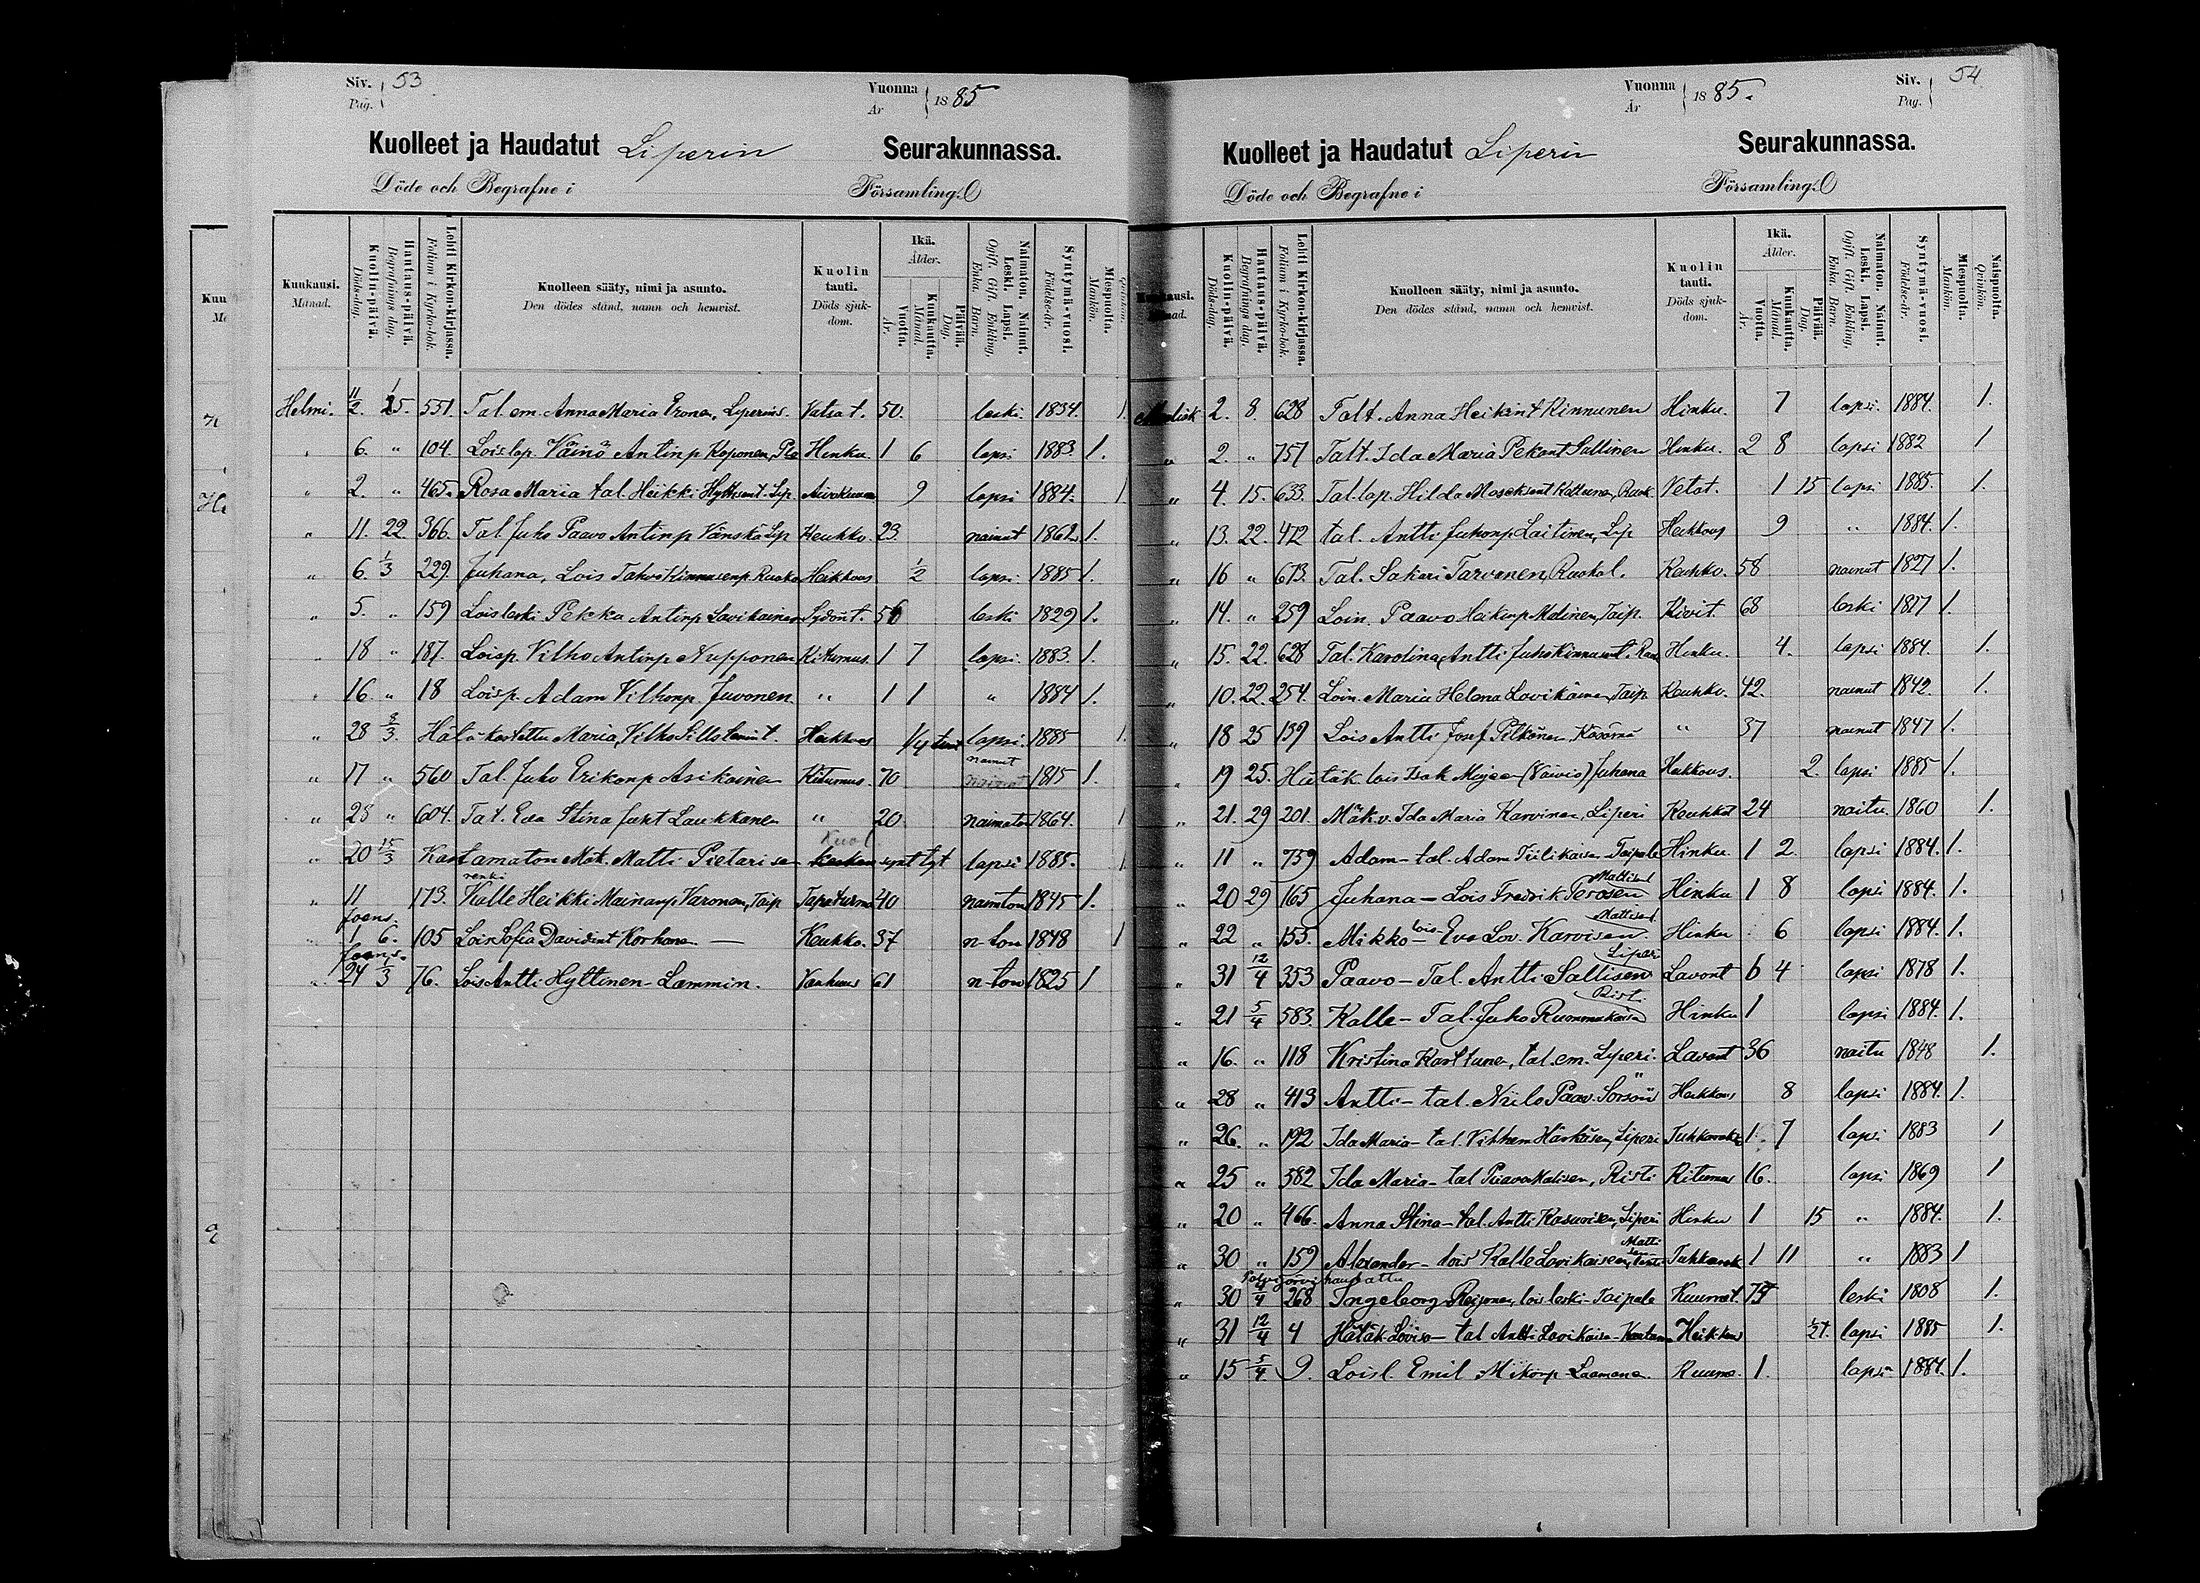 Siv. 53. Vuonna 1885
Pag. År
Kuolleet ja Haudatut Liperin Seurakunnassa.
Döde och Begrafne i Församling.
Kuukausi. Månad. Kuolin-päivä. Döds-dag. Hautaus-päivä. Begrafnings dag. Lehti Kirkon-kirjassa. Folium i Kyrko-bok. Kuolleen sääty, nimi ja asunto. Den dödes stånd, namn och hemvist. Kuolin tauti. Döds sjukdom. Ikä. Ålder. Vuotta. År. Kuukautta. Månad. Päivää. Dag. Naimaton. Nainut. Leski. Lapsi. Ogift. Gift. Enkling. Enka. Barn. Syntymä-vuosi. Födelse-år. Miespuolia. Mankön.
Helmi. 11/2 15. 551. Tal. em. Anna Maria Eronen, Liperins. Vatsa t. 50. leski 1834. 1.
" 6. " 104. Loislap. Väinö Antinp. Koponen, Henku. 1 6 lapsi 1883. 1.
" 2. " 465. Rosa Maria tal. Heikki Hyttisent. Lip. 9 lapsi 1884. 1
" 11. 22 366. Tal. Juho Paavo Antinp Vänskä Lip Keuhko. 23. nainut 1862. 1.
" 6. 1/3 229. Juhana, Lois Tahvo Kinnusenp. Heikkous 1/2 lapsi 1885 1.
" 5. " 159 Loisleski Pekka Antinp Lavikainen Sydönt. 56 leski 1829 1.
" 18 " 187. Loisp. Vilho Antinp Nupponen Kitumus. 1 7 lapsi. 1883. 1.
" 16 " 18 Loisp. Adam Vilhonp. Juvonen. " 1 1 " 1884 1.
" 28 8/3. Hätäkastettu Maria, Vilho Heikkous lapsi. 1885 1.
" 17 " 560 Tal. Juho Erikonp Asikainen Kitumus. 70 nainut 1815 1.
" 23 " 604. Tal. Eva Stina Laukkanen " 20. naimaton 1864. 1
" 20 15/3 Kastamaton Mäk. Matti Pietarise Kuol. synt tyt lapsi 1885. 1
renki
" 11 173. Kalle Heikki Varonen, Taip Tapaturma 40 naimton 1845 1.
" 1 6. 105 Lois Sofia Davidint Korhone — Keuhko. 37 n-ton 1848 1
" 24 1/3 76. Lois Antti Hyttinen - Lammin. Vanhuus 61 n-ton 1825 1
Vuonna 1885. Siv. 54
År Pag.
Kuolleet ja Haudatut Liperin Seurakunnassa.
Döde och Begrafne i Församling.
Kuolin-päivä. Döds-dag. Hautaus-päivä. Begrafnings dag. Lehti Kirkon-kirjassa. Folium i Kyrko-bok. Kuolleen sääty, nimi ja asunto. Den dödes stånd, namn och hemvist. Kuolin tauti. Döds sjukdom. Ikä. Ålder. Vuotta. År. Kuukautta. Månad. Päivää. Dag. Naimaton. Nainut. Leski. Lapsi. Ogift. Gift. Enkling. Enka. Barn. Syntymä-vuosi. Födelse-år. Miespuolia. Mankön. Naispuolia. Qvinkön.
2. 8. 628 Talt. Anna Heikint Kinnunen Hinku. 7 lapsi. 1884. 1.
" 2. " 757 Talt. Ida Maria Pekant Sallinen Hinku. 2 8 lapsi 1882 1
" 4. 15. 633. Tal. lap. Hilda Vetot. 1 15 lapsi 1885. 1.
" 13. 22. 472 tal. Antti Juhonp. Laitinen, Lip Heikkous 9 " 1884. 1.
" 16 " 673. Tal. Sakari Tarvonen, Keuhko. 58 nainut 1827 1.
" 14. " 259 Loin. Paavo Heikinp Malinen, Taip. Kivit. 68 leski 1817 1.
" 15. 22. 628 Tal. Karolina, Antti Hinku. 4. lapsi 1884. 1.
" 10. 22. 254. Loin. Maria Helena Lavikainen, Taip. Keuhko. 42. nainut 1842. 1.
" 18 25 139 Lois Antti Josef. Pitkänen Käsämä " 37 nainut 1847 1.
" 19 25. Hätäk. lois Isak (Väivis) Juhana Heikkous. 2. lapsi 1885 1.
" 21. 29 201. Mäk. v. Ida Maria Karvinen, Liperi Keuhkot 24 naitu. 1860 1.
" 11 " 759 Adam - tal. Adam Tiilikaisen - Taipale Hinku. 1 2. lapsi 1884. 1.
" 20 29 165 Juhana - Lois Fredrik Terosen Hinku 1 8 lapsi 1884. 1.
" 22 " 155. Mikko - lois Eva Lov. Karvisen Hinku 6 lapsi 1884. 1.
Liperi
" 31 12/4 353 Paavo - Tal. Antti Sallisen Lavont 6 4 lapsi 1878 1.
Risti
" 21 5/4 583. Kalle - Tal. Juho Rummukaisen Hinku 1 lapsi 1884. 1.
" 16. " 118 Kristina Karttunen, tal. em. Liperi. Lavont 36 naitu 1848 1.
" 28 " 413 Antti - tal. Niilo Paav. Sorsön Heikkous 8 lapsi 1884. 1.
" 26. " 192 Ida Maria - tal. Vilhem Härkösen, Liperi Tuhkarokko 1. 7 lapsi 1883 1
" 25 " 582 Ida Maria - tal Paavo Malisen, Risti Kitumus 16. lapsi 1869 1
" 20 " 466. Anna Stina - tal. Antti Kasurisen, Liperi Hinku 1 15 " 1884. 1.
Matti
" 30 " 159 Alexander - lois Kalle Lavikaisen, Tuhkarok 1 11 " 1883 1
Polvijärvi haudattu
" 30 4/4 268 Ingeborg Reijonen, lois leski - Taipale Kuumet. 77 leski 1808 1.
" 31 12/4 4 Hätäk. Lovisa - tal Antti Lavikaise - Heikkous 1/2 t. lapsi 1885 1.
" 15 5/4 9. Loisl. Emil Mikonp - Laamane. Kuume. 1. lapsi 1884. 1.